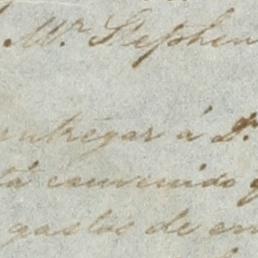 Mr. Stephen
entregar á
tá convenido
gastos de